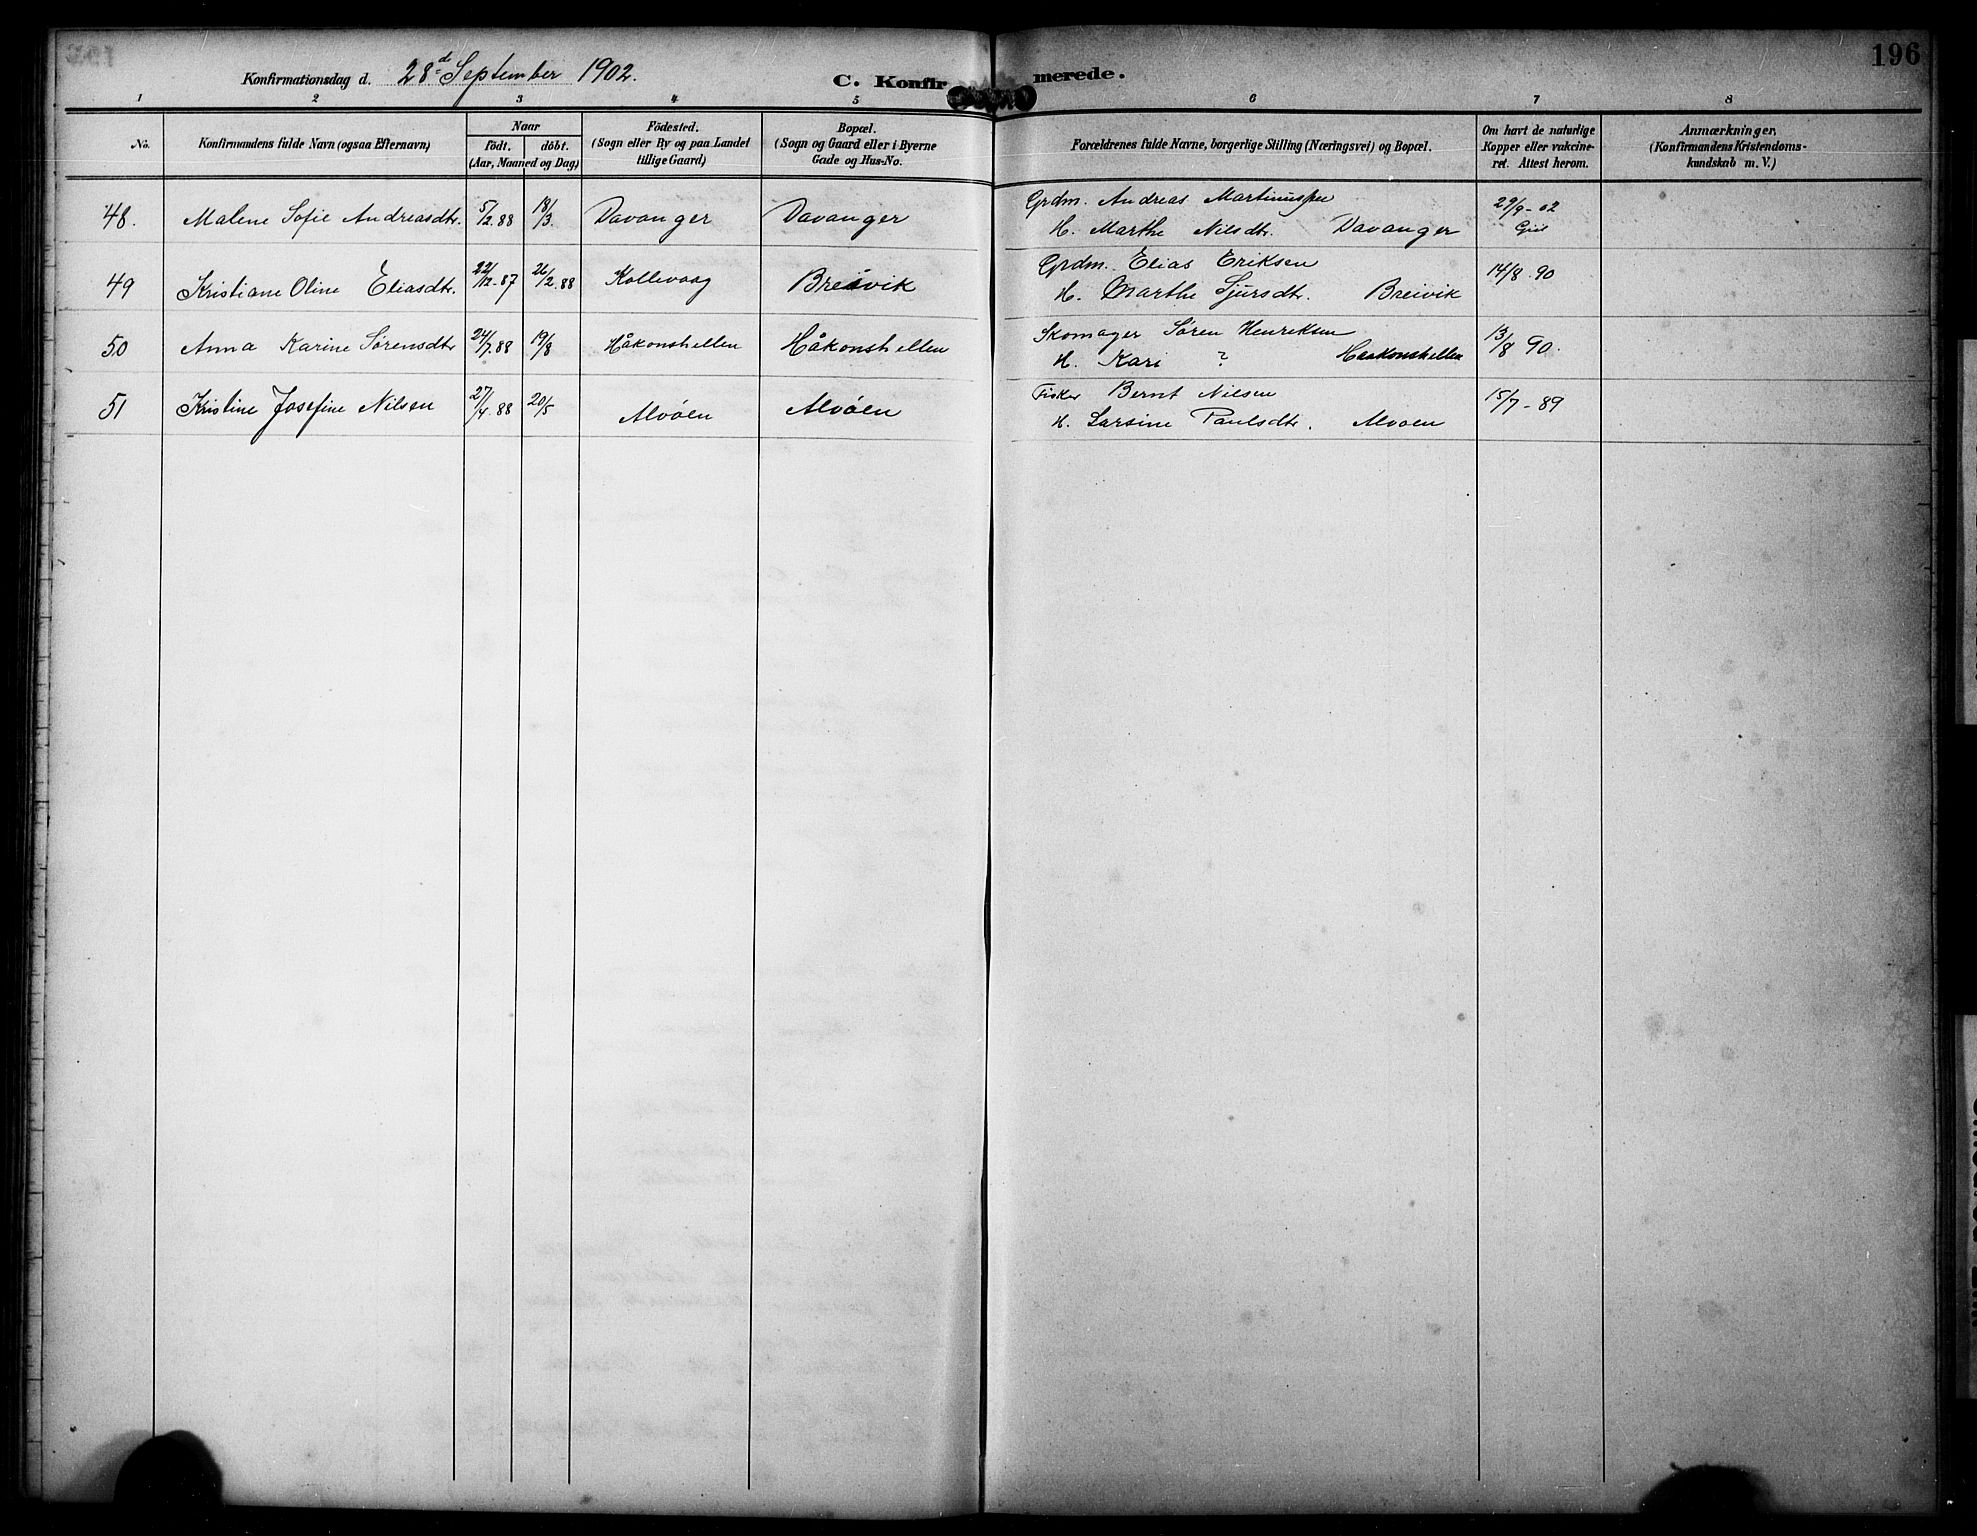 196
Konfirmationsdag d. 28de September 1902.
C. Konfirmerede.
1 2 3 4 5 6 7 8
No.
Konfirmandens fulde Navn (ogsaa Efternavn)
Naar
födt. döbt.
(Aar, Maaned og Dag)
Födested.
(Sogn eller By og paa Landet
tillige Gaard)
Bopæl.
(Sogn og Gaard eller i Byerne
Gade og Hus-No.
Forældrenes fulde Navne, borgerlige Stilling (Næringsvei) og Bopæl.
Om havt de naturlige
Kopper eller vakcine-
ret. Attest herom.
Anmærkninger.
(Konfirmandens Kristendoms-
kundskab m. V.)
48. Malene Sofie Andreasdtr. 5/2.88 18/3. Davanger Davanger Grdm. Andreas Martinussen 29/9-02
H. Marthe Nilsdtr. Davanger
49 Kristiane Oline Eliasdtr. 22/12-87 26/2.88 Kollevaag Breivik Grdm. Elias Eriksen 14/8-90
H. Marthe Sjursdtr. Breivik
50 Anna Karine Sørensdtr 24/7.88 19/8 Håkonshellen Håkonshellen Skomager Søren Henriksen 13/8 90.
H. Kari ? Haakonshellen
51 Kristine Josefine Nilsen 27/4.88 20/5 Alvøen Alvøen Fisker Bernt Nilsen 15/7-89
H. Larsine Paulsdtr. Alvøen